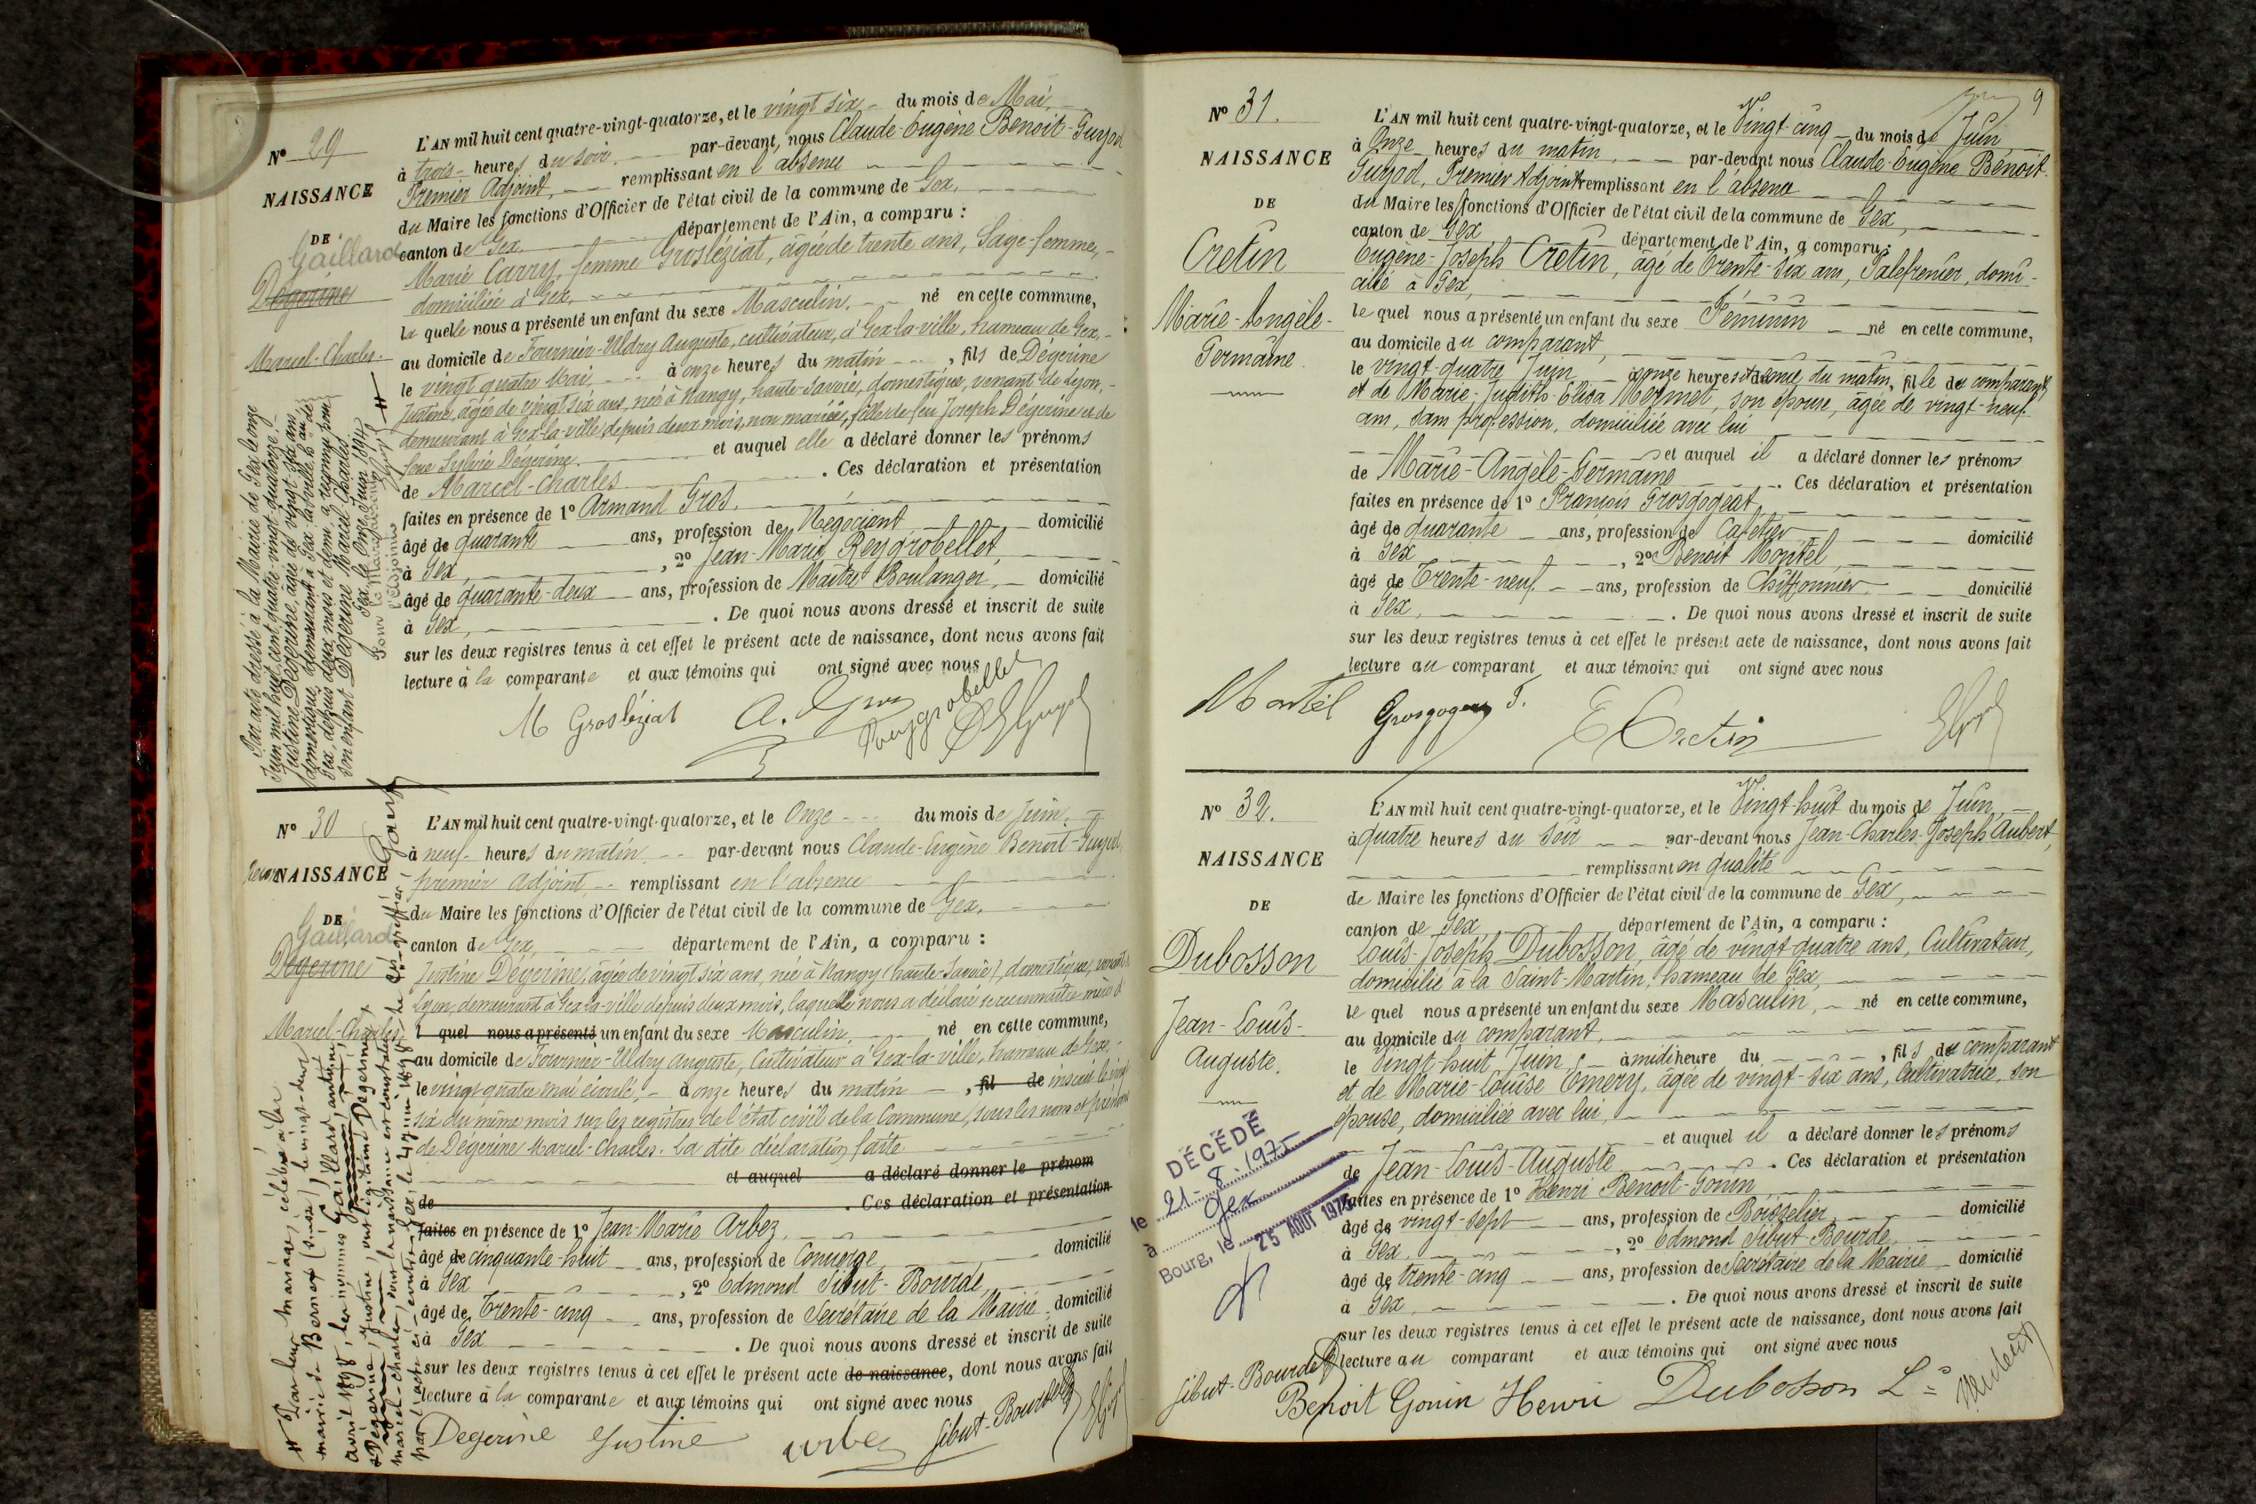 Nº 29
NAISSANCE
DE
Gaillard
Dégerine
Marcel-Charles
L'AN mil huit cent quatre-vingt-quatorze, et le vingt six du mois de Mai,
à trois heures du soir par-devant, nous Claude-Eugène Benoit-Guyod
Premier Adjoint, remplissant en l'absence
du Maire les fonctions d'Officier de l'état civil de la commune de Gex,
canton de Gex, département de l'Ain, a comparu :
Marie Carry, femme Grosléziat, âgée de trente ans, Sage-femme,
domiciliée à Gex,
la quelle nous a présenté un enfant du sexe Masculin, né en cette commune,
au domicile de Fournier-Uldry Auguste, cultivateur, à Gex-la-ville, hameau de Gex,
le vingt quatre Mai, à onze heures du matin, fils de Dégerine
Justine, âgée de vingt six ans, née à Nangy, haute-Savoie, domestique, venant de Lyon,
demeurant à Gex-la-ville depuis deux mois, non mariée, fille de feu Joseph Dégerine et de
feue Sylvie Dégerine. et auquel elle a déclaré donner les prénoms
de Marcel-Charles. Ces déclaration et présentation
faites en présence de 1º Armand Gros,
âgé de quarante ans, profession de Négociant domicilié
à Gex, 2º Jean-Marie Reygrobellet
âgé de quarante-deux ans, profession de Maître Boulanger, domicilié
à Gex, . De quoi nous avons dressé et inscrit de suite
sur les deux registres tenus à cet effet le présent acte de naissance, dont nous avons fait
lecture à la comparante et aux témoins qui ont signé avec nous
M Grosléziat A. Gros Reygrobellet
Par acte dressé à la Mairie de Gex le onze
Juin mil huit cent quatre-vingt quatorze,
Justine Dégerine, âgée de vingt six ans,
domestique, demeurant à Gex-la-ville, hau de
Gex, depuis deux mois et demi, a reconnu pour
son enfant Dégerine Marcel Charles
Gex, le Onze Juin 1894
Pour le Maire
l'Adjoint
Nº 30
NAISSANCE
DE
Gaillard
Dégerine
Marcel-Charles
L'AN mil huit cent quatre-vingt-quatorze, et le Onze du mois de Juin,
à neuf heures du matin par-devant nous Claude-Eugène Benoit-Guyod,
premier adjoint remplissant en l'absence
du Maire les fonctions d'Officier de l'état civil de la commune de Gex,
canton de Gex, département de l'Ain, a comparu :
Justine Dégerine, âgée de vingt six ans, née à Nangy (haute-Savoie), domestique, venant de
Lyon, demeurant à Gex-la-ville depuis deux mois, laquelle nous a déclaré se reconnaître mère d'
l quel nous a présenté un enfant du sexe Masculin, né en cette commune,
au domicile de Fournier-Uldry Auguste, Cultivateur à Gex-la-ville, hameau de Gex,
le vingt-quatre mai écoulé, à onze heures du matin, fil de inscrit le vingt
six du même mois sur les registres de l'état civil de la Commune, sous les nom et prénoms
de Dégerine Marcel-Charles. La dite déclaration faite
et auquel a déclaré donner le prénom
de . Ces déclaration et présentation
faites en présence de 1º Jean-Marie Arbez,
âgé de cinquante-huit ans, profession de Concierge domicilié
à Gex, 2º Edmond Sibut-Bourde,
âgé de Trente-cinq ans, profession de Secrétaire de la Mairie domicilié
à Gex . De quoi nous avons dressé et inscrit de suite
sur les deux registres tenus à cet effet le présent acte de naissance, dont nous avons fait
lecture à la comparante et aux témoins qui ont signé avec nous
Degerine Justine Arbez Sibut-Bourde
Par leur mariage, célébré à la
mairie de Bernex (Suisse), le vingt-deux
avril 1898, les nommés Gaillard, antoine,
& Dégerine, Justine, ont légitimé Degerine,
marcel-charles, dont la naissance est constatée
par l'acte ci-contre. Gex, le 4 juin 1898. Le Gis-greffier :
Nº 31.
NAISSANCE
DE
Cretin
Marie-Angèle-
Germaine
9
L'AN mil huit cent quatre-vingt-quatorze, et le Vingt-cinq du mois de Juin
à Onze heures du matin, par-devant nous Claude-Eugène Bénoit-
Guyod, Premier Adjoint remplissant en l'absence
du Maire les fonctions d'Officier de l'état civil de la commune de Gex,
canton de Gex département de l'Ain, a comparu :
Eugène-Joseph Cretin, âgé de Trente-six ans, Palefrenier, domi-
cilié à Gex,
le quel nous a présenté un enfant du sexe Féminin né en cette commune,
au domicile du comparant,
le vingt-quatre Juin à onze heures et demie du matin, fille du comparant
et de Marie-Judith-Elisa Mermet, son épouse, âgée de vingt-neuf
ans, sans profession, domiciliée avec lui
et auquel il a déclaré donner les prénoms
de Marie-Angèle-Germaine. Ces déclaration et présentation
faites en présence de 1º François Grosgogeat
âgé de quarante ans, profession de Cafetier domicilié
à Gex, 2º Benoit Montel,
âgé de Trente-neuf ans, profession de Chiffonnier domicilié
à Gex, . De quoi nous avons dressé et inscrit de suite
sur les deux registres tenus à cet effet le présent acte de naissance, dont nous avons fait
lecture au comparant et aux témoins qui ont signé avec nous
Montel Grosgogeat F. E Cretin
Nº 32.
NAISSANCE
DE
Dubosson
Jean-Louis-
Auguste.
DÉCÉDÉ
le 21-8-1975
à Gex
Bourg, le 25 AOUT 1975
L'AN mil huit cent quatre-vingt-quatorze, et le Vingt-huit du mois de Juin,
à quatre heures du soir par-devant nous Jean-Charles-Joseph Aubert,
remplissant en qualité
de Maire les fonctions d'Officier de l'état civil de la commune de Gex,
canton de Gex, département de l'Ain, a comparu :
Louis-Joseph Dubosson, âgé de vingt-quatre ans, Cultivateur,
domicilié à la Saint-Martin, hameau de Gex,
le quel nous a présenté un enfant du sexe Masculin, né en cette commune,
au domicile du comparant,
le Vingt-huit Juin, à midi heure du , fils du comparant
et de Marie-Louise Emery, âgée de vingt-six ans, Cultivatrice, son
épouse, domiciliée avec lui,
et auquel il a déclaré donner les prénoms
de Jean-Louis-Auguste. Ces déclaration et présentation
faites en présence de 1º Henri Benoit-Gonin
âgé de vingt-sept ans, profession de Boisselier, domicilié
à Gex, 2º Edmond Sibut-Bourde,
âgé de trente-cinq ans, profession de Secrétaire de la Mairie domicilié
à Gex, . De quoi nous avons dressé et inscrit de suite
sur les deux registres tenus à cet effet le présent acte de naissance, dont nous avons fait
lecture au comparant et aux témoins qui ont signé avec nous
Sibut-Bourde
Benoit Gonin Henri Dubosson Ls